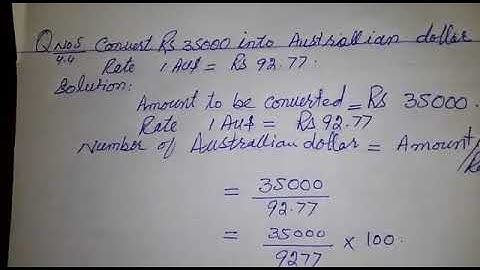 Q No 5 Convert Rs 35000 into Australlian dollar
4.4 Rate 1 Au$ = Rs 92.77.
Solution:
Amount to be converted = Rs 35000.
Rate 1 Au$ = Rs 92.77
Number of Australlian dollar = Amount/
= 35000
92.77
= 35000 × 100.
9277